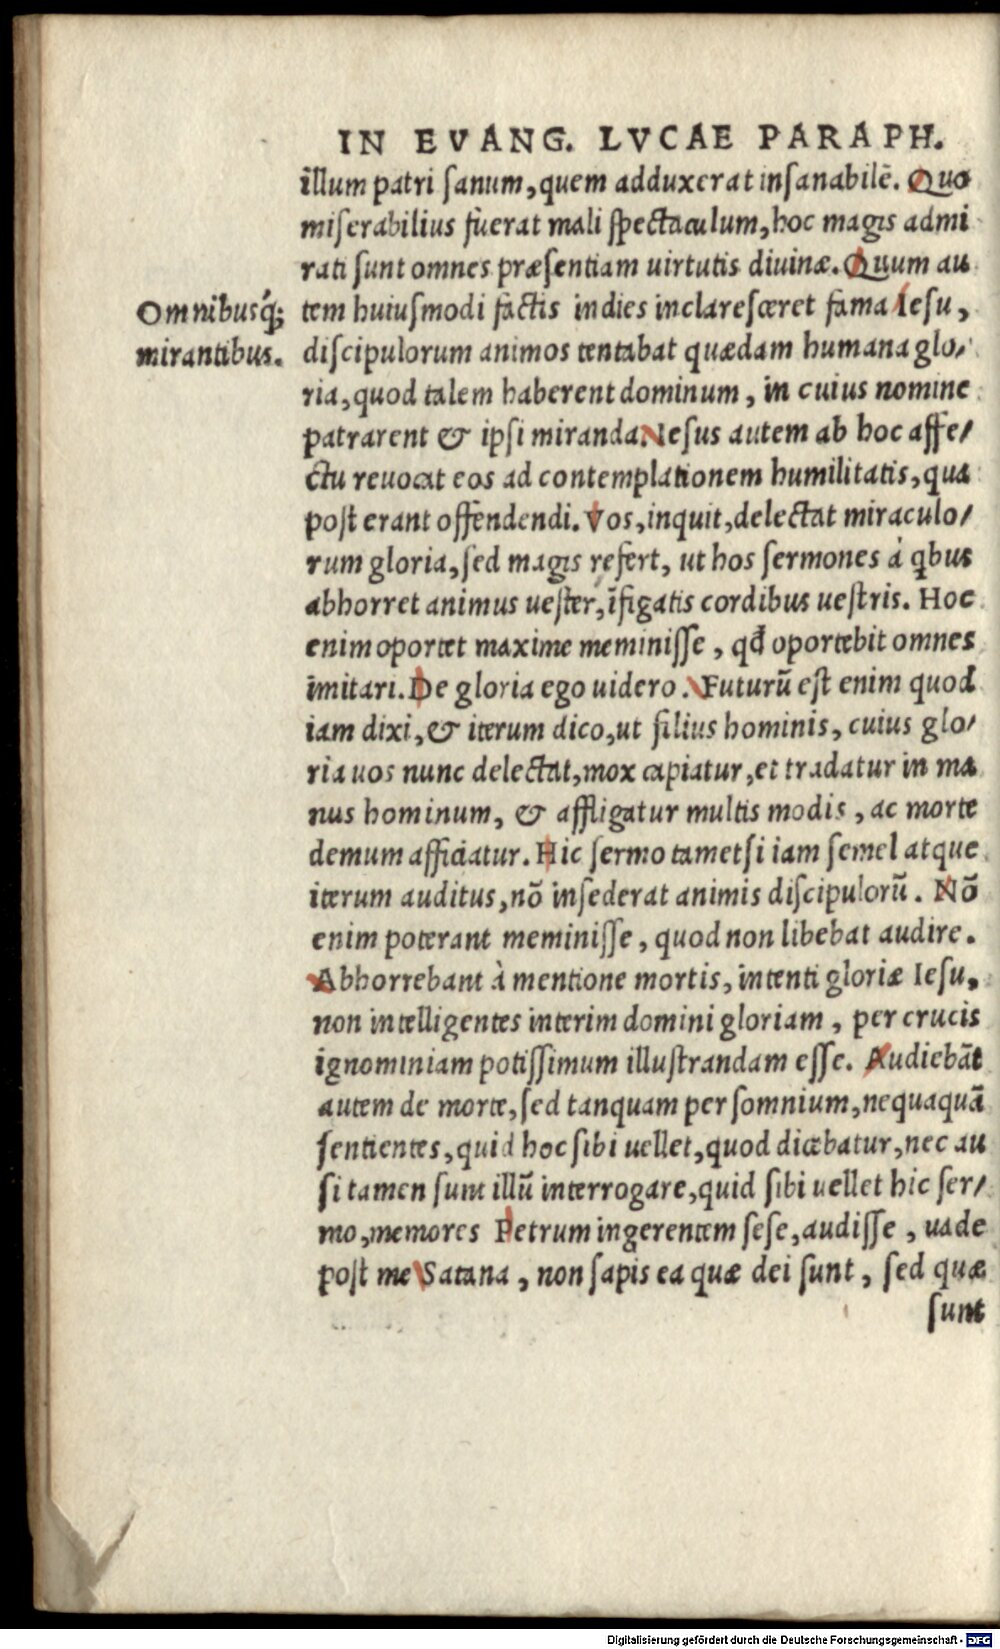 IN EVANG. LVCAE PARAPH.
illum patri ſanum, quem adduxerat inſanabilē. Quo
miſerabilius fuerat mali ſpectaculum, hoc magis admi
rati ſunt omnes præſentiam uirtutis diuinæ. Quum au
Omnibusq́;
mirantibus.
tem huiuſmodi factis indies inclareſceret fama Ieſu,
diſcipulorum animos tentabat quædam humana glo/
ria, quod talem haberent dominum, in cuius nomine
patrarent & ipſi miranda. Ieſus autem ab hoc affe/
ctu reuocat eos ad contemplationem humilitatis, qua
poſt erant offendendi. Vos, inquit, delectat miraculo/
rum gloria, ſed magis refert, ut hos ſermones à qbus
abhorret animus ueſter, īfigatis cordibus ueſtris. Hoc
enim oportet maxime meminiſſe, qđ oportebit omnes
imitari. De gloria ego uidero. Futurū eſt enim quod
iam dixi, & iterum dico, ut filius hominis, cuius glo/
ria uos nunc delectat, mox capiatur, et tradatur in ma
nus hominum, & affligatur multis modis, ac morte
demum afficiatur. Hic ſermo tametſi iam ſemel atque
iterum auditus, nō inſederat animis diſcipulorū. Nō
enim poterant meminiſſe, quod non libebat audire.
Abhorrebant à mentione mortis, intenti gloriæ Ieſu,
non intelligentes interim domini gloriam, per crucis
ignominiam potiſſimum illuſtrandam eſſe. Audiebāt
autem de morte, ſed tanquam per ſomnium, nequaquā
ſentientes, quid hoc ſibi uellet, quod dicebatur, nec au
ſi tamen ſunt illū interrogare, quid ſibi uellet hic ſer/
mo, memores Petrum ingerentem ſeſe, audiſſe, uade
poſt me Satana, non ſapis ea quæ dei ſunt, ſed quæ
ſunt
Digitalisierung gefördert durch die Deutsche Forschungsgemeinschaft - DFG